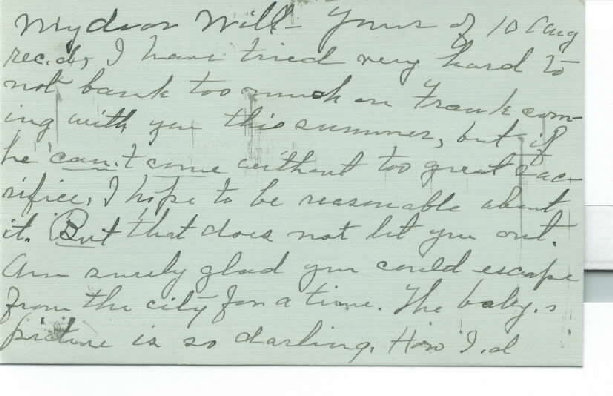 My dear Will - Yours of 10 Aug
rec.d, I have tried very hard to
not bank too much on Frank com-
ing with you this summer, but if
he can't come without too great sac-
rifice, I hope to be reasonable about
it. But that does not let you out.
Am surely glad you could escape
from the city for a time. The baby,s
picture is so darling. How I,d